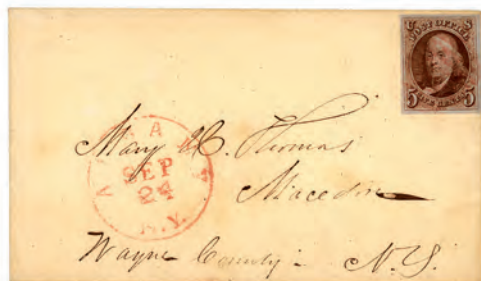 U S
POST OFFICE
5 FIVE CENTS 5
SEP
24
N.Y.
Mary H. Thomas
Macedon
Wayne County - N.Y.